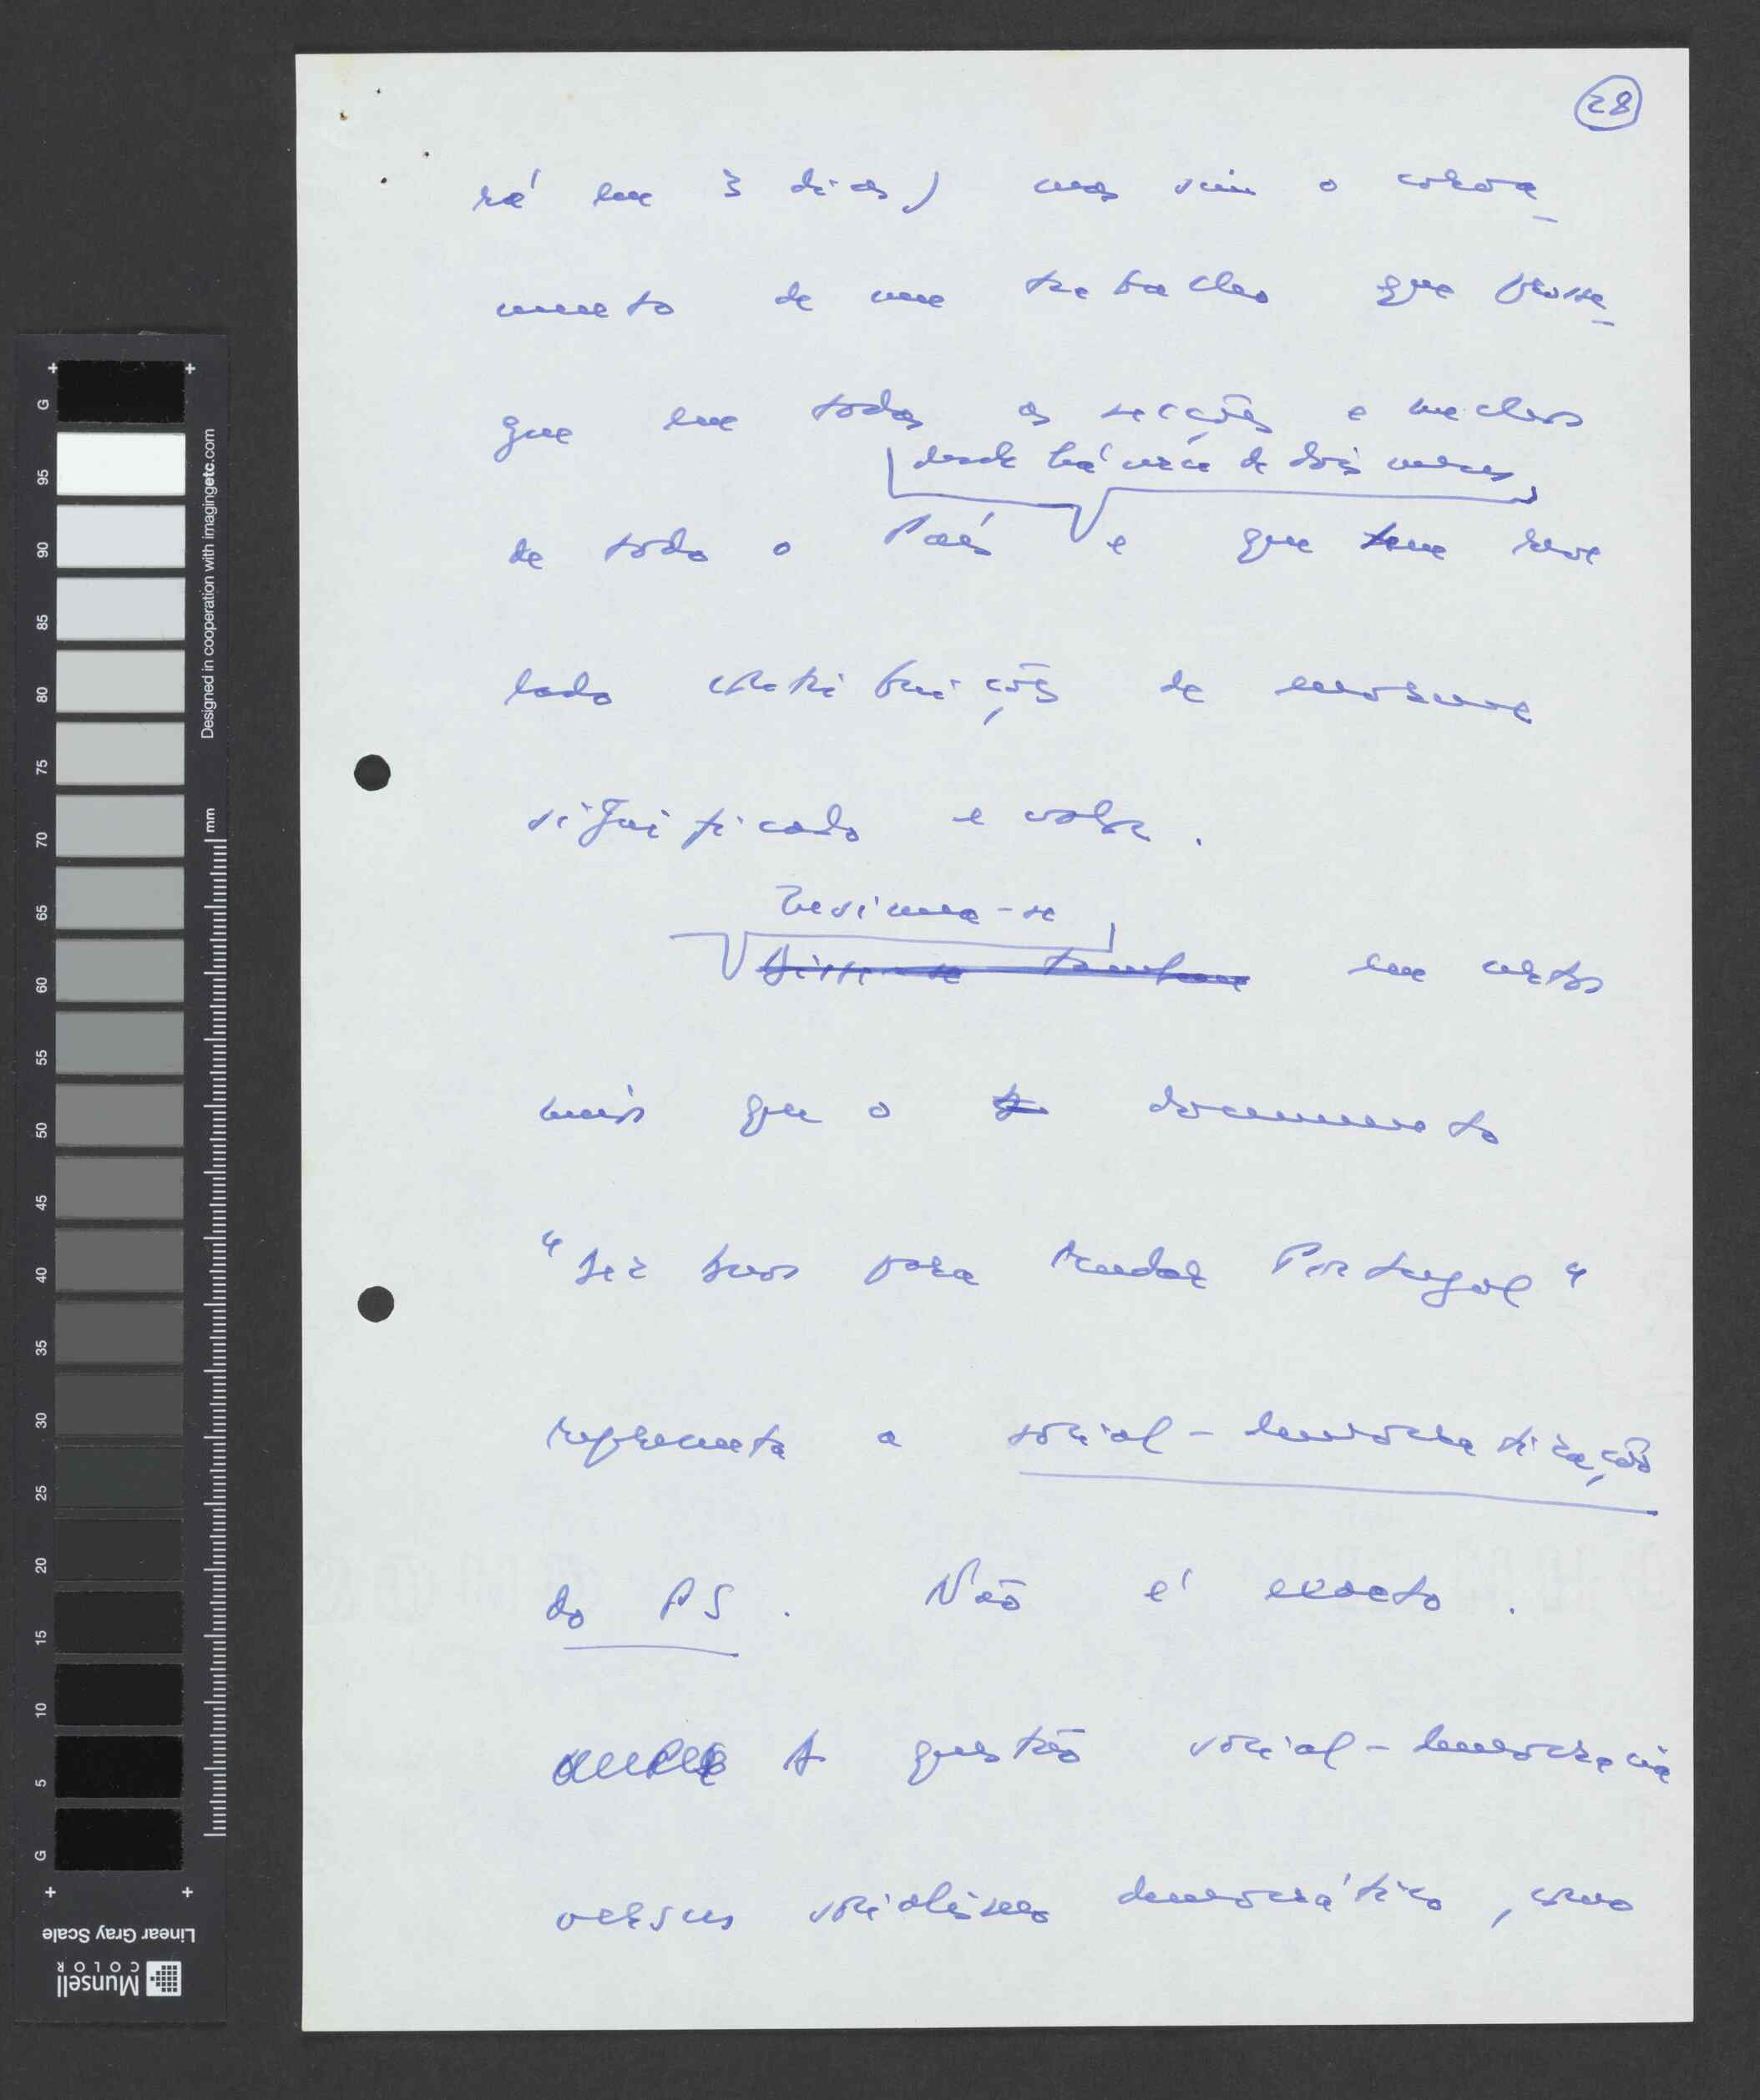 28
rá em 3 dias) mas sim o coroa-
mento de um trabalho que prosse-
gue em todas as secções e núcleos
desde há cerca de dois meses,
de todo o País e que tem reve
lado contribuições de enorme
significado e valor.
-se
Disse-se também em certos
meios que o documento
"Dez anos para mudar Portugal"
representa a social-democratização
do PS. Não é exacto.
A questão social-democracia
versus socialismo democrático, como
G
95
90
85
80
75
70
65
60
55
50
45
40
35
30
25
20
15
10
5
G
mm
Designed in cooperation with imagingetc.com
Linear Gray Scale
Munsell
COLOR